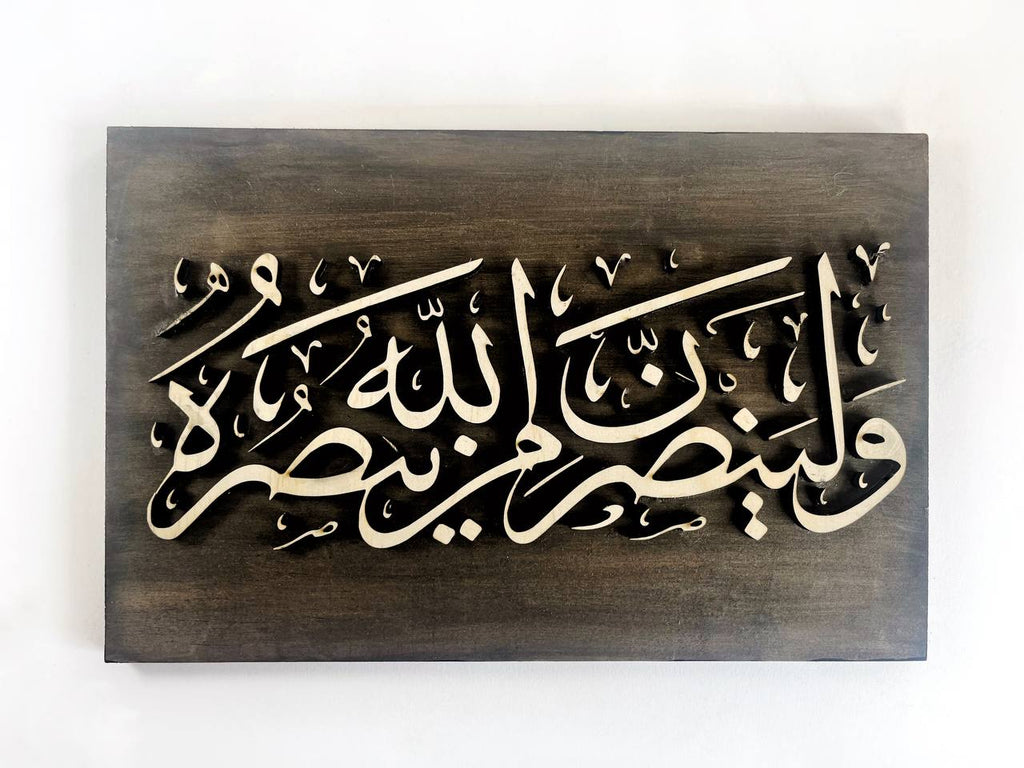 وَلَيَنْصُرَنَّ اللَّهُ مَنْ يَنْصُرُهُ